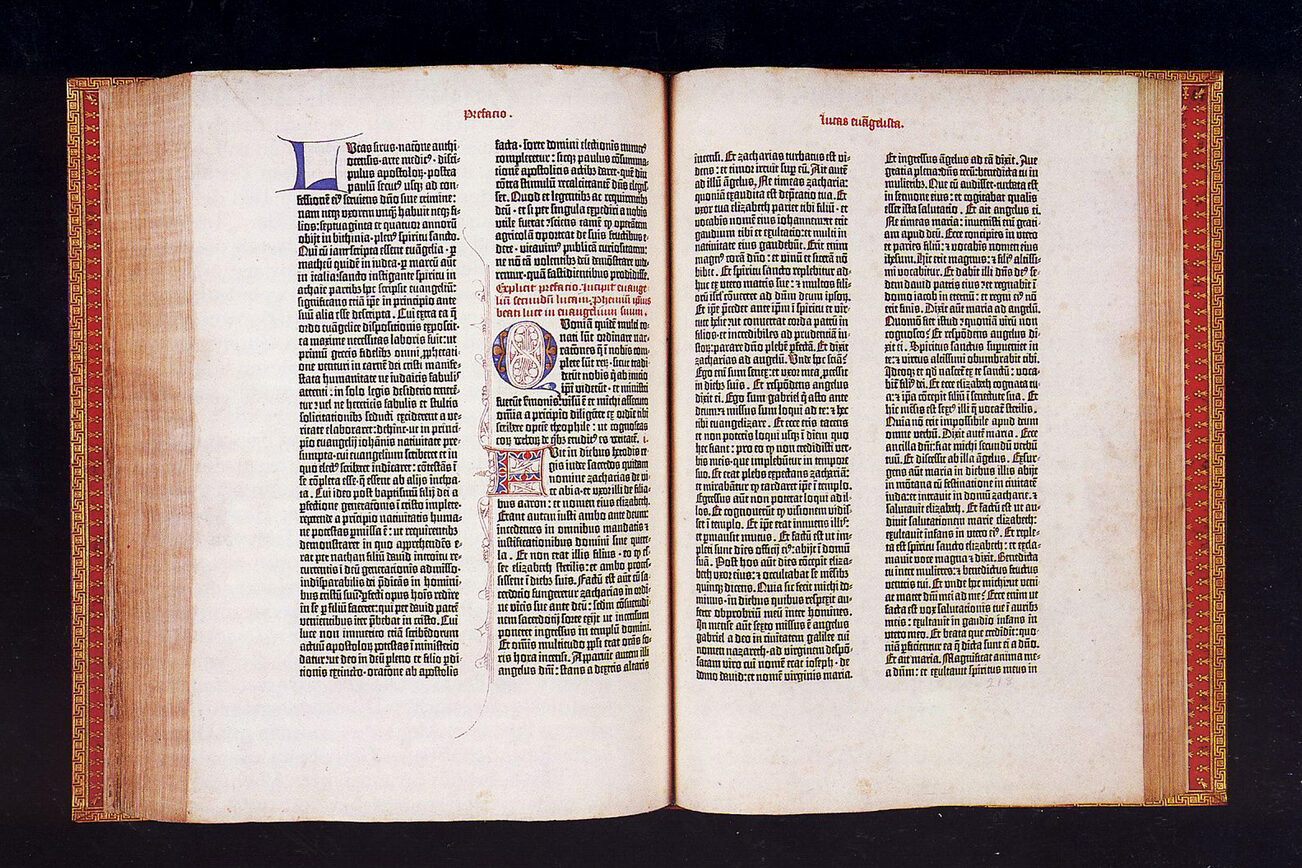 Prefacio.
Lucas sirus · natōne anthi
ocensis · arte medic⁹ · disci
pulus apostoloꝝ · postea
paulū secut⁹ usqꝫ ad con-
fessionē ei⁹ serviens dño sine crimine:
nam neqꝫ uxorem unqꝫ habuit neqꝫ fi-
lios: septuaginta et quatuor annorū
obijt in bithinia · plen⁹ spiritu sancto.
Qui cū iam scripta essent euāgelia · ꝑ
matheū quidē in iudea · ꝑ marcū aūt
in italia: sancto instigante spiritu in
achaie partibꝫ hoc scripsit euangeliū:
significans etiā ip̄e in principio ante
suū alia esse descripta. Cui extra ea q̄
ordo euāgelice dispositionis exposcit ·
ea maxime necessitas laboris fuit: ut
primū grecis fidelibꝫ omni ꝓphetati-
one venturi in carnē dei cristi manife-
stata humanitate ne iudaicis fabulis
attenti: in solo legis desiderio tenerē-
tur: vel ne hereticis fabulis et stultis
solicitationibꝫ seducti exciderent a ve-
ritate elaboraret: dehinc · ut in princi-
pio euangelij iohānis nativitate pre-
sumpta · cui euangelium scriberet et in
quo electꝫ scriberet indicaret: cōtestās ī
se cōpleta esse · q̄ essent ab alijs inchoa-
ta. Cui ideo post baptismū filij dei a
ꝑfectione generatōnis ī cristo implete ·
repetende a principio nativitatis huma-
ne potestas ꝑmissa ē: ut requirentibꝫ
demonstraret in quo apprehendēs e-
rat per nathan filiū david introitu re-
currentis ī deū generationis admisso ·
indisparabilis dei p̄dicās in homini-
bus cristū suū · ꝑfecti opus hoīs redire
in se ꝑ filiū faceret: qui per david patrē
venientibus iter p̄bebat in cristo. Cui
luce non immerito etiā scribēdorum
actuū apostoloꝝ potestas ī ministerio
datur: ut deo in deū pleno et filio ꝓdi-
tionis extincto · oratōne ab apostolis
facta · sorte domini electionis numerꝰ
compleretur: sicqꝫ paulus cōsumma-
tionē apostolicis actibꝫ daret · quē diu
cōtra stimulū recalcitrantē dn̄s elegis-
set. Quod et legentibꝫ ac requirentibꝫ
deū · et si per singula expediri a nobis
utile fuerat: sciens tamē qꝫ operātem
agricolā oporteat de suis fructibus e-
dere · vitavimꝰ publicā curiositatem:
ne nō tā volentibꝫ deū demōstrare vide-
remur · quā fastidientibus prodidisse.
Explicit prefacio. Incipit euange
liū secundū lucam. Prhemiū ipsius
beati luce in euangelium suum.
Quoniā quidē multi co-
nati sūt ordinare nar-
rationes q̄ ī nobis com-
plete sūt reꝝ · sicut tradi
derūt nobis q̄ ab initio
ip̄i viderūt · et ministri
fuerūt sermonis: visū ē et michi assecuto
omīa a prīcipio diligēter ex ordīe tibi
scribere optīe theophile: ut cognoscas
eoꝝ verboꝝ de qbꝫ eruditꝰ es veritatē. I.
Fuit in diebus herodis re-
gis iude sacerdos quidam
nomine zacharias de vi-
ce abia · et uxor illi de filia-
bus aaron: et nomen eius elizabeth.
Erant autem iusti ambo ante deum:
incedentes in omnibus mandatis et
iustificationibus domini sine quere-
la. Et non erat illis filius · eo qꝫ es-
set elizabeth sterilis: et ambo proces-
sissent ī diebꝫ suis. Factū est aūt cū sa-
cerdotio fungeretur zacharias in ordi-
ne vicis sue ante deū: scdm cōsuetudi-
nem sacerdotij sorte exijt ut incensum
poneret ingressus in templū domini.
Et om̄is multitudo ꝑpli erat orās fo-
ris hora incensi. Apparuit autem illi
angelus dn̄i: stans a dextris altaris
Lucas euāgelista.
incensi. Et zacharias turbatus est vi-
dens: et timor irruit sup eū. Ait autē
ad illū āgelus. Ne timeas zacharia:
quoniā exaudita est dep̄catio tua. Et
uxor tua elizabeth pariet tibi filiū · et
vocabis nomē eius iohannem: et erit
gaudium tibi et exultatio: et multi in
nativitate eius gaudebūt. Erit enim
magnꝰ corā dn̄o: et vinū et sicerā nō
bibet. Et spiritu sancto replebitur ad-
huc ex utero matris sue: et multos fili-
oꝝ isrl̄ cōvertet ad dn̄m deum ipsoꝝ.
Et ip̄e precedet ante ip̄m ī spiritu et vir-
tute helie: ut convertat corda patrū in
filios · et incredibiles ad prudentiā iu-
stoꝝ: parare dn̄o plebē ꝑfectā. Et dixit
zacharias ad angelū. Unde hoc sciā?
Ego enī sum senex: et uxor mea ꝓcessit
in diebꝫ suis. Et respōdens angelus
dixit ei. Ego sum gabriel q̄ asto ante
deum: et missus sum loqui ad te: et hec
tibi euangelizare. Et ecce eris tacens
et non poteris loqui usqꝫ ī diem quo
hec fiant: pro eo qꝫ non credidisti ver-
bis meis · que implebūtur in tempore
suo. Et erat plebs expectans zachariā:
et mirabātur qꝫ tardaret ip̄e ī templo.
Egressus aūt non poterat loqui ad il-
los. Et cognoverūt qꝫ visionem vidis-
set ī templo. Et ip̄e erat innuens illis:
et ꝑmansit mutus. Et factū est ut im-
pleti sunt dies officij eiꝰ: abijt ī domū
suā. Post hos aūt dies cōcepit eliza-
beth uxor eius: et occultabat se mēsibꝫ
quinqꝫ dicens. Quia sic fecit michi do-
minus · in diebus quibus respexit au-
ferre obprobriū meū inter homines.
In mense aūt sexto missus ē angelus
gabriel a deo in civitatem galilee cui
nomen nazareth · ad virginem despō-
satam viro cui nomē erat ioseph · de
domo david: et nomē virginis maria.
Et ingressus āgelus ad eā dixit. Ave
gratia plena: dn̄s tecū: benedicta tu in
mulieribꝫ. Que cū audisset · turbata est
in sermone eius: et cogitabat qualis
esset ista salutatio. Et ait angelus ei.
Ne timeas maria: invenisti enī grati-
am apud deū. Ecce concipies in utero
et paries filiū: et vocabis nomen eius
ihesum. Hic erit magnus: et filiꝰ altissi-
mi vocabitur. Et dabit illi dn̄s deꝰ se-
dem david patris eius: et regnabit ī
domo iacob in eternū: et regni eiꝰ nō
erit finis. Dixit aūt maria ad angelū.
Quomō fiet istud: quoniā virū non
cognosco? Et respōdens angelus di-
xit ei. Spiritus sanctus superveniet in
te: et virtus altissimi obumbrabit tibi.
Ideoqꝫ et qd nascet̄ ex te sanctū: voca-
bit̄ filiꝰ dei. Et ecce elizabeth cognata tu-
a: et ip̄a cōcepit filiū ī senectute sua. Et
hic mēsis est sextꝰ illi q̄ vocat̄ sterilis.
Quia nō erit impossibile apud deum
omne verbū. Dixit autē maria. Ecce
ancilla dn̄i: fiat michi secundū verbū
tuū. Et discessit ab illa āgelus. Exur-
gens aūt maria in diebus illis abijt
in mōtana cū festinatione in civitatē
iuda: et intravit in domū zacharie: et
salutavit elizabeth. Et factū est ut au-
divit salutationem marie elizabeth:
exultavit infans in utero eiꝰ. Et reple-
ta est spiritu sancto elizabeth: et excla-
mavit voce magna et dixit. Benedicta
tu inter mulieres: et benedictus fructus
ventris tui. Et unde hoc michi: ut veni
at mater dn̄i mei ad me? Ecce enim ut
facta est vox salutationis tue ī auribꝫ
meis: exultavit in gaudio infans in
utero meo. Et beata que credidit: quo-
niā ꝑficientur ea q̄ dicta sunt ei a dn̄o.
Et ait maria. Magnificat anima me-
a dn̄m: et exultavit spiritus meus in